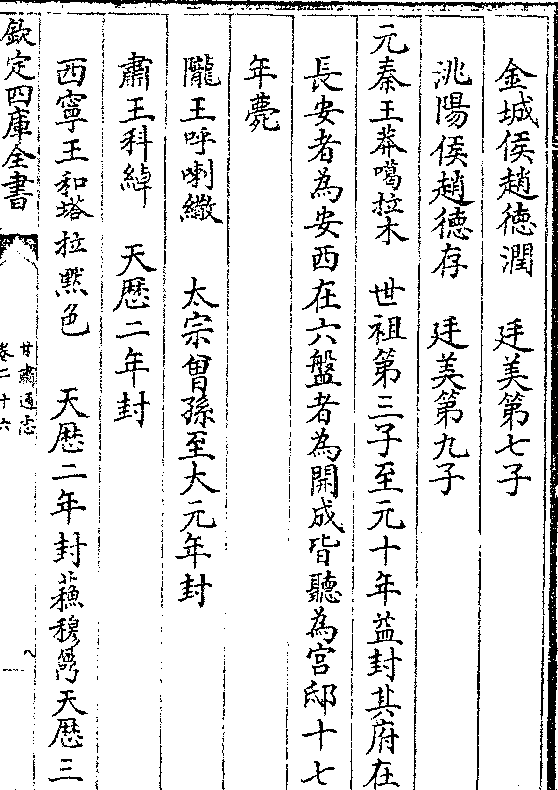 金城侯趙德潤　廷美第七子
洮陽侯趙德存　廷美第九子
元秦王莽噶拉木　世祖第三子至元十年益封其府在
長安者為安西在六盤者為開成皆聽為宮邸十七
年薨
隴王呼喇繖　太宗曾孫至大元年封
肅王科綽　天歷二年封
西寧王和塔拉黙色　天歷二年封蘓穆爾天歷三
欽定四庫全書
甘肅通志
卷二十六